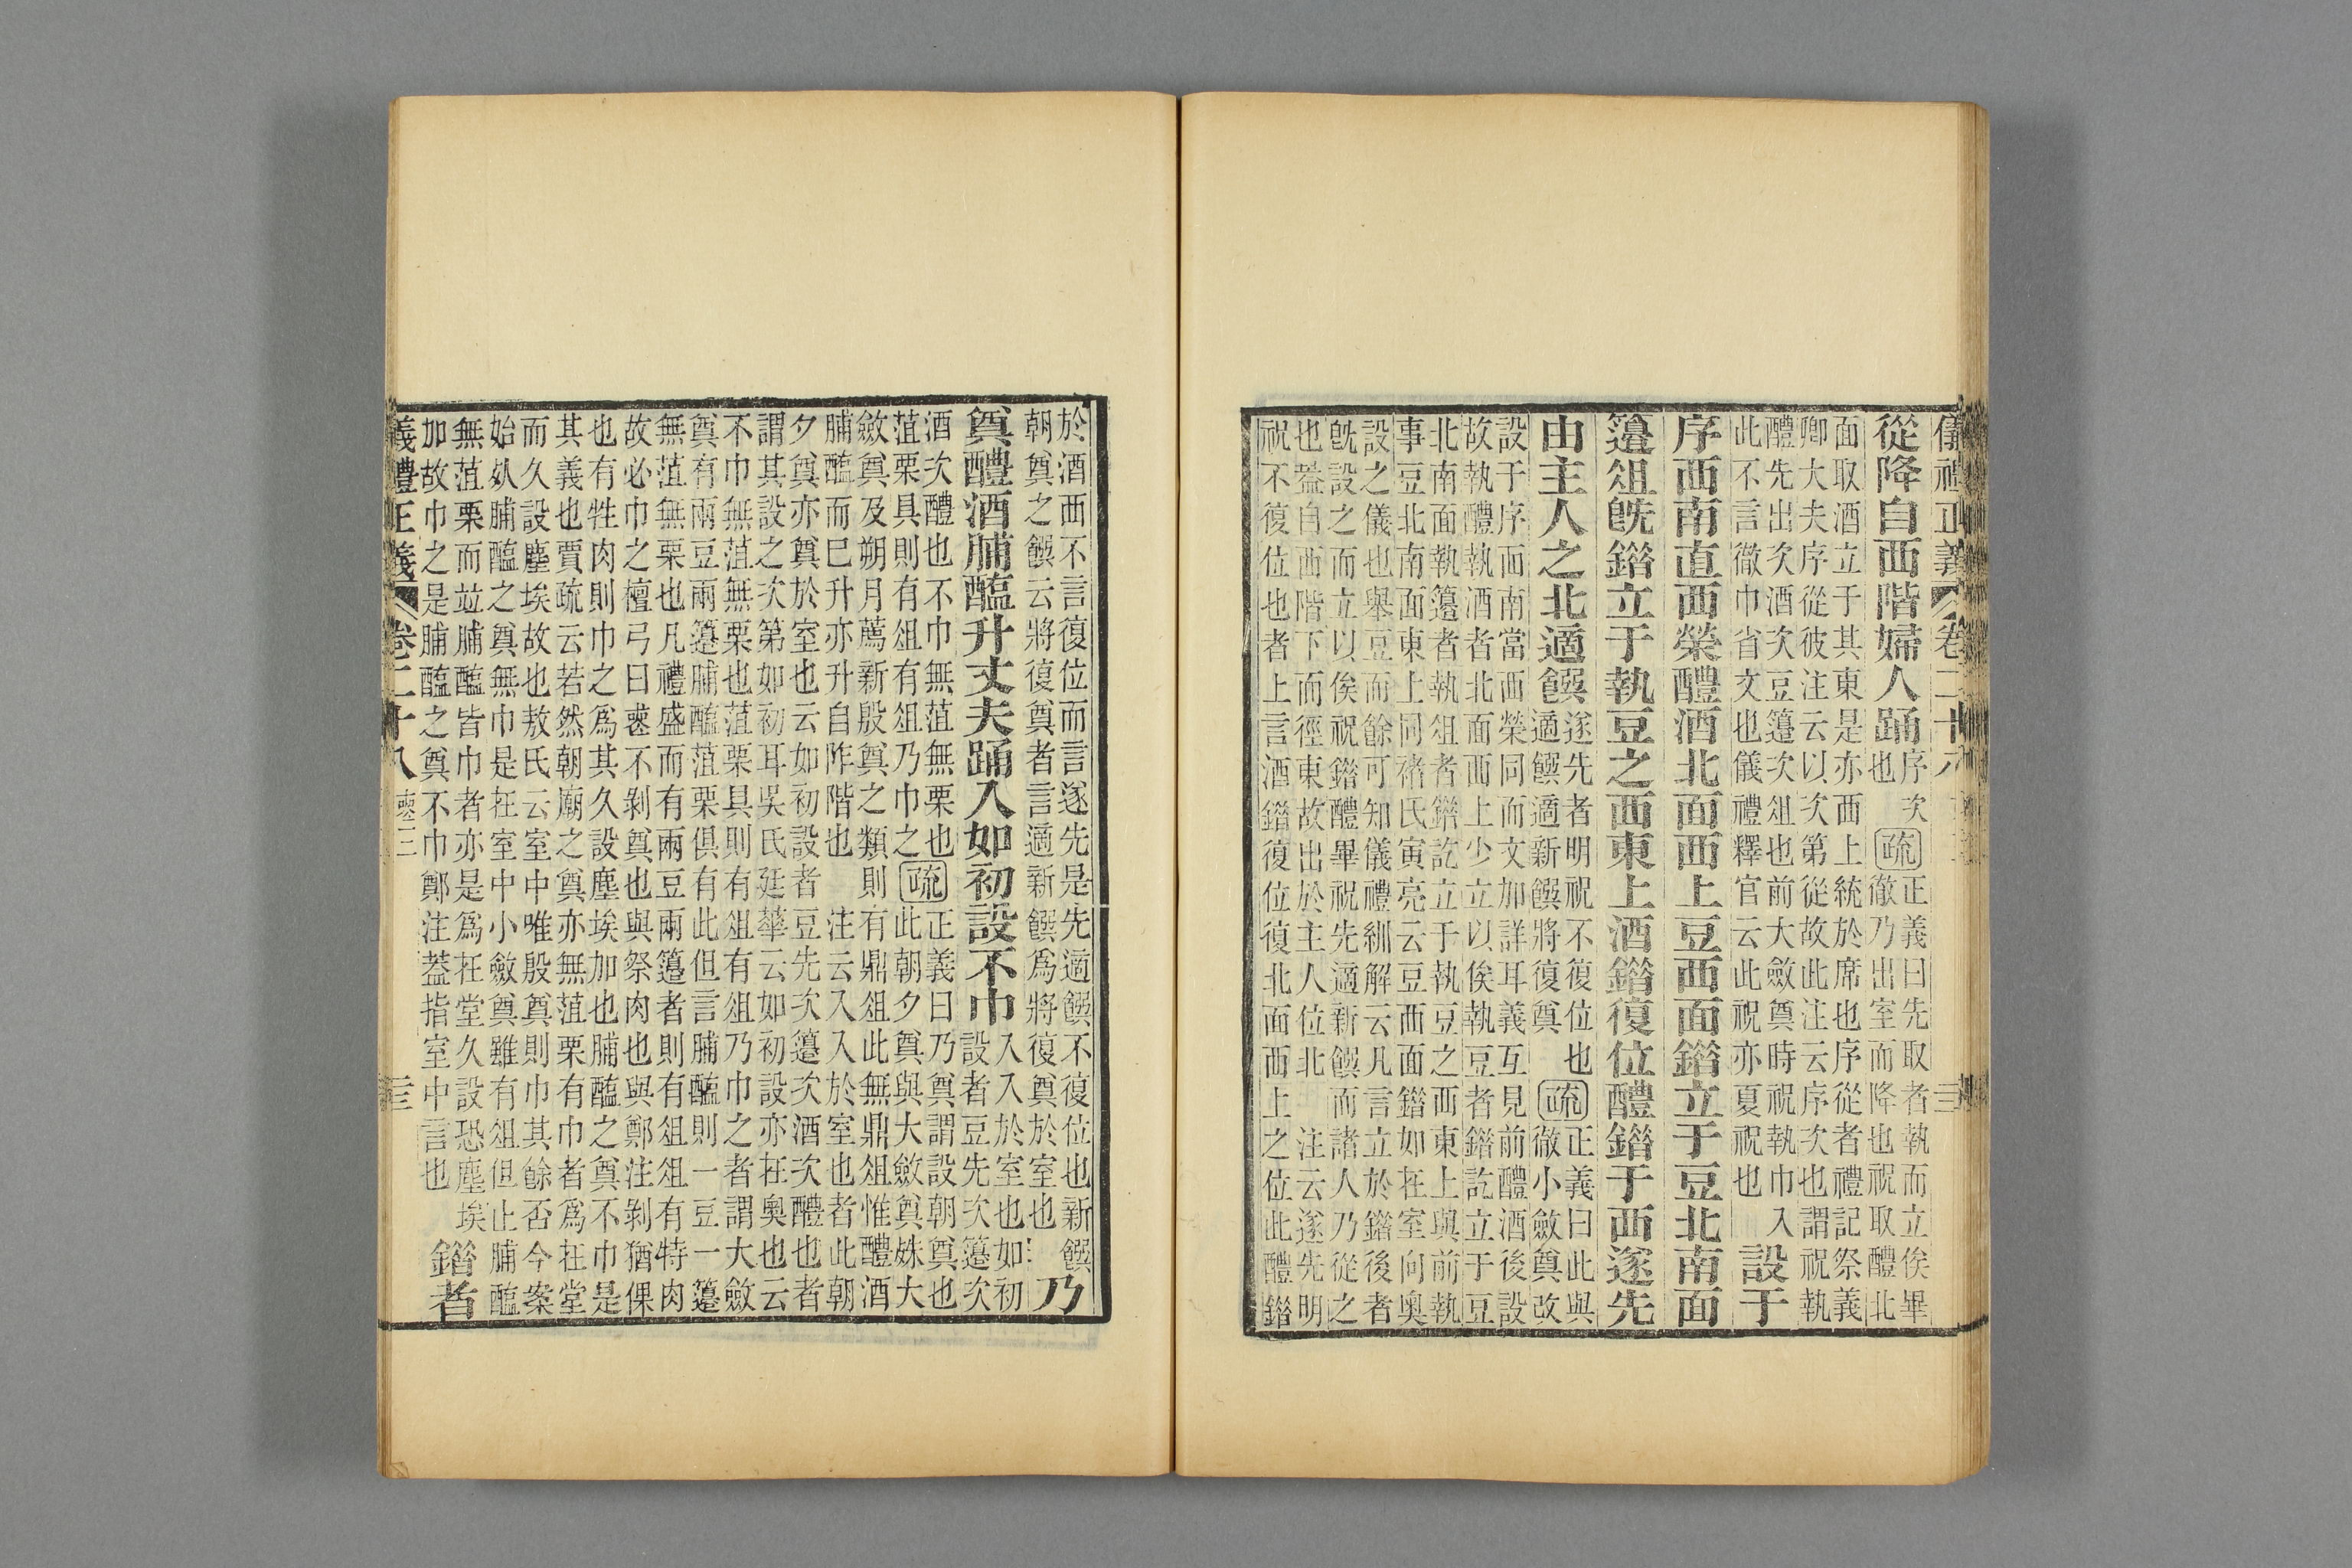 儀禮正義 卷二十八
從降自西階婦人踊 序次
也 疏 正義曰先取者執而立俟畢
徹乃出室而降也祝取醴北
面取酒立于其東是亦西上統於席也序從者禮記祭義
卿大夫序從彼注云以次第從故此注云序次也謂祝執
醴先出次酒次豆籩次俎也前大斂奠時祝執巾入
此不言徹巾省文也儀禮釋官云此祝亦夏祝也 設于
序西南直西榮醴酒北面西上豆西面錯立于豆北南面
籩俎旣錯立于執豆之西東上酒錯復位醴錯于西遂先
由主人之北適饌 遂先者明祝不復位也
適饌適新饌將復奠 疏 正義曰此與
徹小斂奠改
設于序西南當西榮同而文加詳耳義互見前醴酒後設
故執醴執酒者北面西上少立以俟執豆者錯訖立于豆
北南面執籩者執俎者錯訖立于執豆之西東上與前執
事豆北南面東上同褚氏寅亮云豆西面錯如在室向奧
設之儀也舉豆而餘可知儀禮紃解云凡言立於錯後者
旣設之而立以俟祝錯醴畢祝先適新饌而諸人乃從之
也葢自西階下而徑東故出於主人位北 注云遂先明
祝不復位也者上言酒錯復位復北面西上之位此醴錯
於酒西不言復位而言遂先是先適饌不復位也新饌
朝奠之饌云將復奠者言適新饌爲將復奠於室也 乃
奠醴酒脯醢升丈夫踊入如初設不巾 入入於室也如初
設者豆先次籩次
酒次醴也不巾無菹無栗也
菹栗具則有俎有俎乃巾之 疏 正義曰乃奠謂設朝奠也
此朝夕奠與大斂奠姝大
斂奠及朔月薦新殷奠之類則有鼎俎此無鼎俎惟醴酒
脯醢而巳升亦升自阼階也 注云入入於室也者此朝
夕奠亦奠於室也云如初設者豆先次籩次酒次醴也者
謂其設之次第如初耳吳氏廷華云如初設亦在奧也云
不巾無菹無栗也菹栗具則有俎有俎乃巾之者謂大斂
奠有兩豆兩籩脯醢菹栗俱有此但言脯醢則一豆一籩
無菹無栗也凡禮盛而有兩豆兩籩者則有俎俎有特肉
故必巾之檀弓曰喪不剝奠也與祭肉也與鄭注剝猶倮
也有牲肉則巾之爲其久設塵埃加也脯醢之奠不巾是
其義也賈疏云若然朝廟之奠亦無菹栗有巾者爲在堂
而久設塵埃故也敖氏云室中唯殷奠則巾其餘否今案
始𣦸脯醢之奠無巾是在室中小斂奠雖有俎但止脯醢
無菹栗而竝脯醢皆巾者亦是爲在堂久設恐塵埃
加故巾之是脯醢之奠不巾鄭注葢指室中言也 錯者
義禮正義 卷二十八 喪三 三